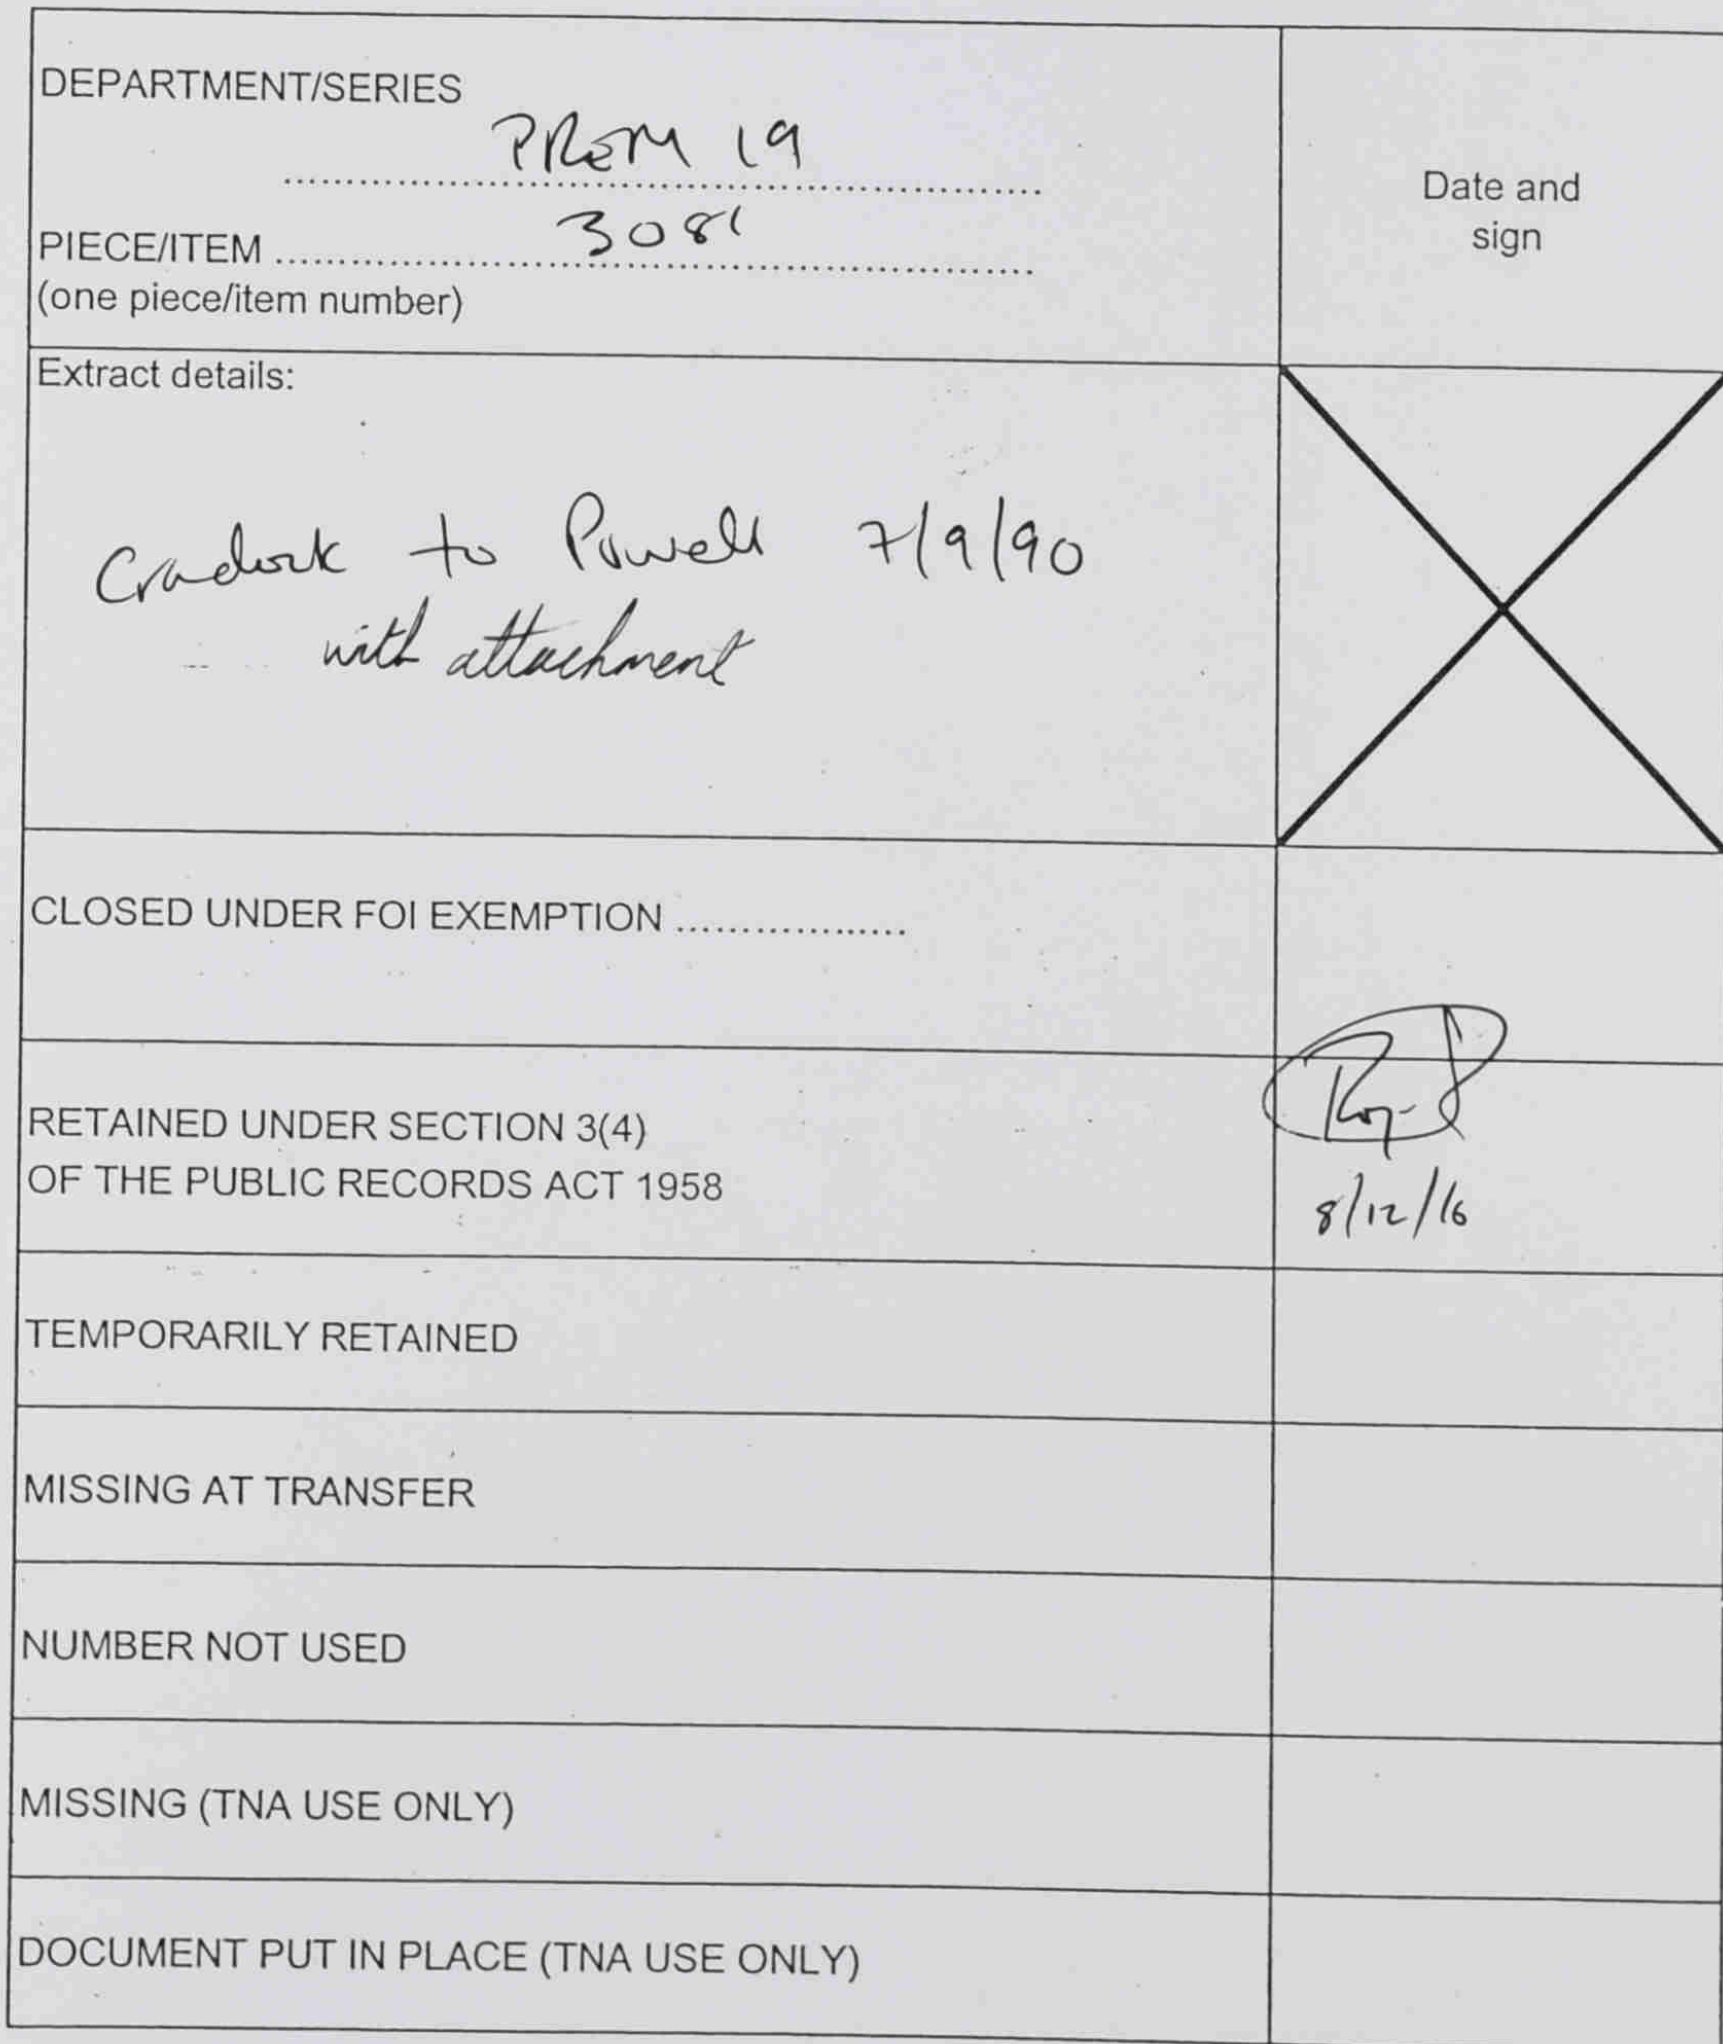 DEPARTMENT/SERIES
PREM 19
Date and
sign
PIECE/ITEM ........ 3081
(one piece/item number)
Extract details:
Cradock to Powell 7/9/90
with attachment
CLOSED UNDER FOI EXEMPTION ..................
RETAINED UNDER SECTION 3(4)
OF THE PUBLIC RECORDS ACT 1958
8/12/16
TEMPORARILY RETAINED
MISSING AT TRANSFER
NUMBER NOT USED
MISSING (TNA USE ONLY)
DOCUMENT PUT IN PLACE (TNA USE ONLY)